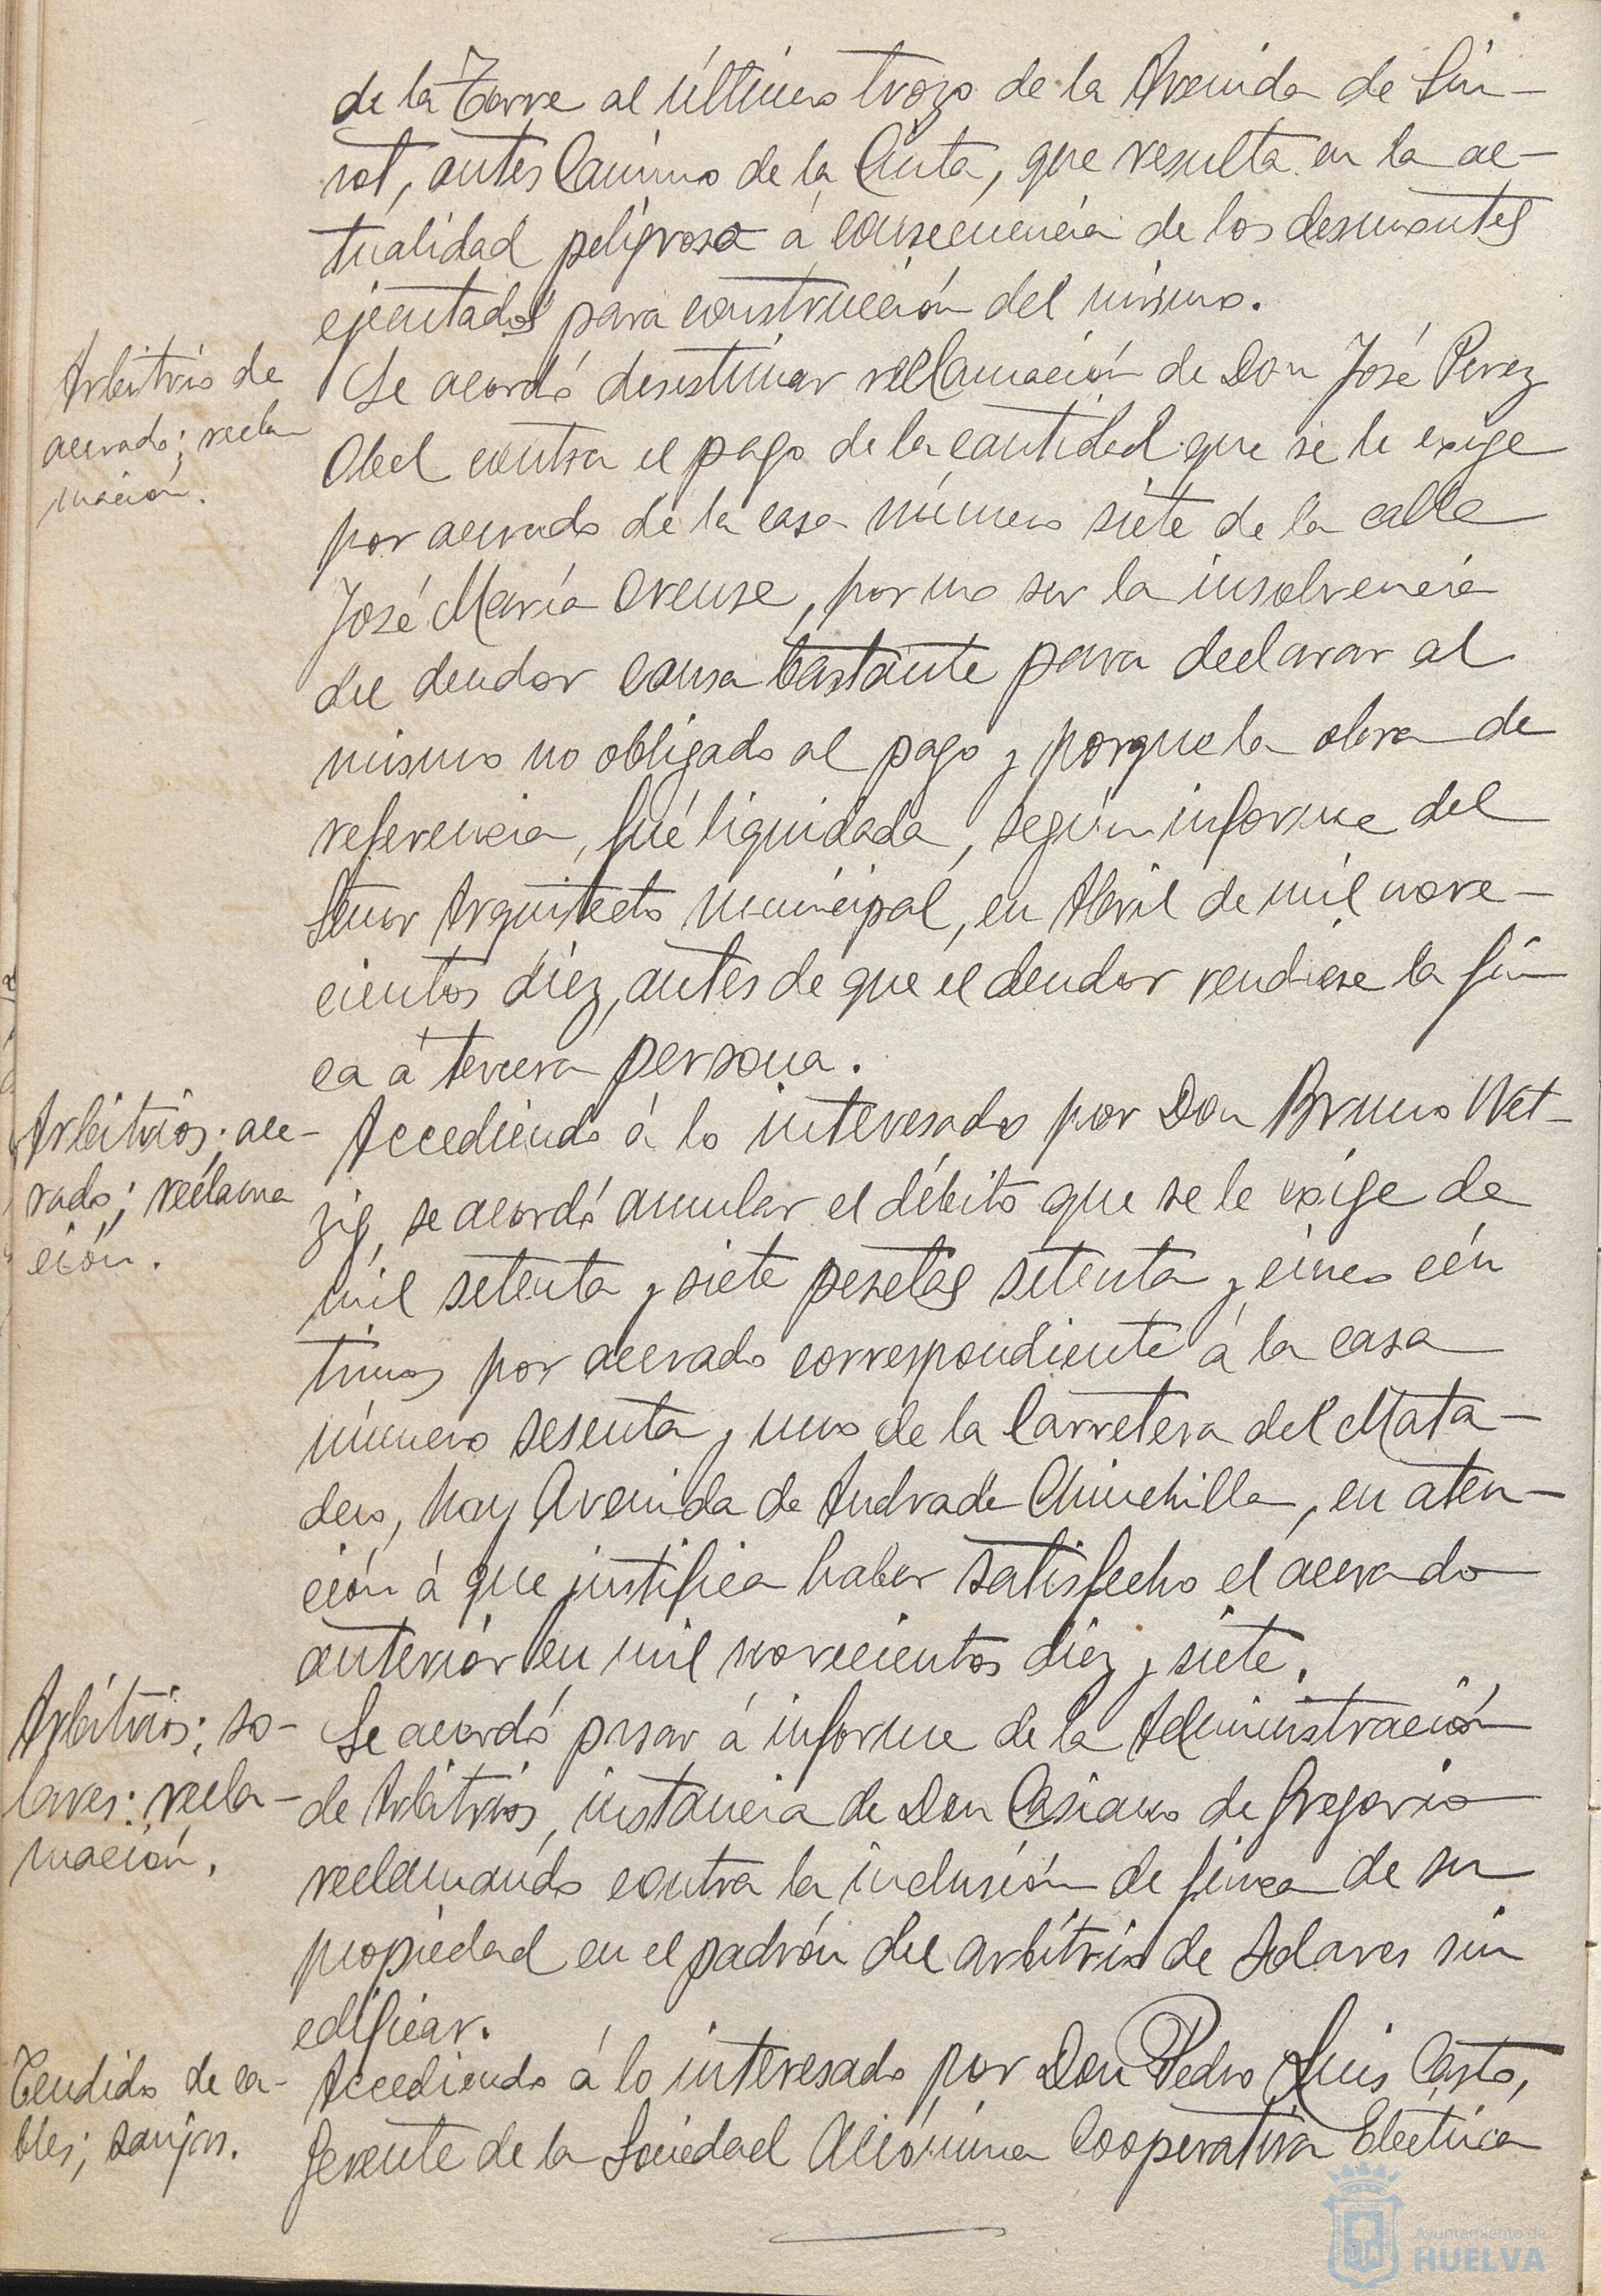 de la Torre al último trozo de la Avenida de Sin-
rot, antes Camino de la Cinta, que resulta en la ac-
tualidad peligrosa á consecuencia de los desmontes
ejecutados para construcción del mismo.
Arbitrio de
acerado; recla
mación.
Se acordó desestimar reclamación de Don José Perez
Abel contra el pago de la cantidad que se le exige
por acerado de la casa número siete de la calle
José María Orense, por no ser la insolvencia
del deudor causa bastante para declarar al
mismo no obligado al pago y porque la obra de
referencia, fué liquidada, según informe del
Señor Arquitecto municipal, en Abril de mil nove-
cientos diez, antes de que el deudor vendiese la fin
ca á tercera persona.
Arbitrios; ace-
rado; reclama
ción.
Accediendo á lo interesado por Don Bruno Wet-
zig, se acordó anular el débito que se le exige de
mil setenta y siete pesetas setenta y cinco cén
timos por acerado correspondiente á la casa
número sesenta y uno de la Carretera del Mata-
dero, hoy Avenida de Andrade Chinchilla, en aten-
ción á que justifica haber satisfecho el acerado
anterior en mil novecientos diez y siete.
Arbitrios; so-
lares; recla-
mación.
Se acordó pasar á informe de la Administración
de Arbitrios, instancia de Don Casiano de Gregorio
reclamando contra la inclusión de finca de su
propiedad en el padrón del arbitrio de solares sin
edificar.
Tendido de ca-
bles; zanjas.
Accediendo á lo interesado por Don Pedro Luis Casto,
Gerente de la Sociedad Anónima Cooperativa Electrica
Ayuntamiento de
HUELVA